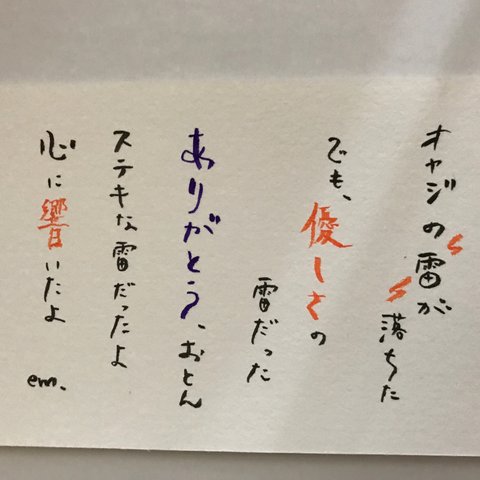 オヤジの雷が
落ちた
でも、優しさの
雷だった
ありがとう、おとん
ステキな雷だったよ
心に響いたよ
em.